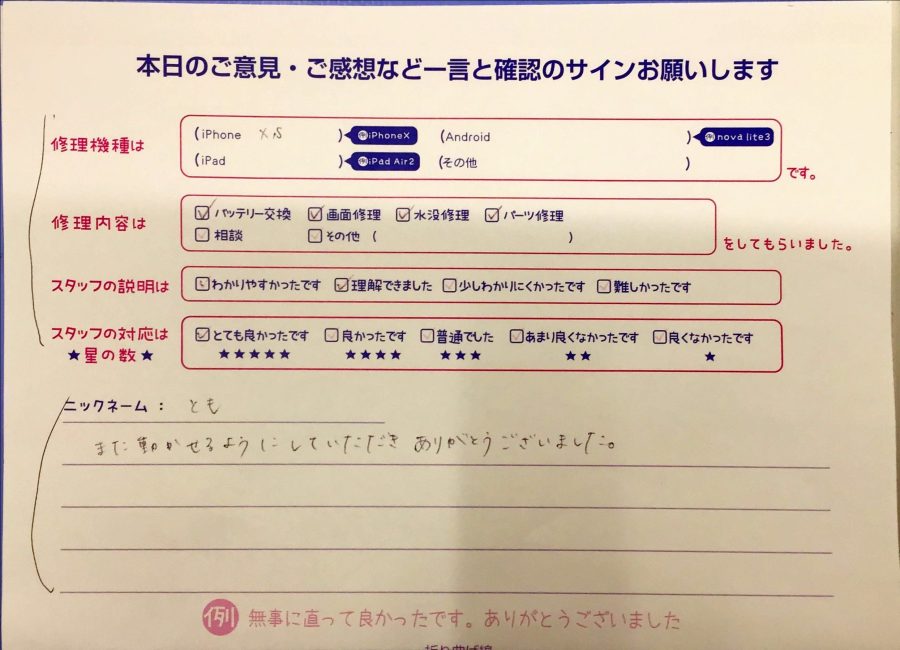 本日のご意見・ご感想など一言と確認のサインお願いします
修理機種は (iPhone XS ) 例iPhoneX (Android ) 例nova lite3
(iPad ) 例iPad Air2 (その他 ) です。
修理内容は ☑バッテリー交換 ☑画面修理 ☑水没修理 ☑パーツ修理
☐相談 ☐その他 ( ) をしてもらいました。
スタッフの説明は ☐わかりやすかったです ☑理解できました ☐少しわかりにくかったです ☐難しかったです
スタッフの対応は ☑とても良かったです ☐良かったです ☐普通でした ☐あまり良くなかったです ☐良くなかったです
★星の数★ ★★★★★ ★★★★ ★★★ ★★ ★
ニックネーム: とも
また動かせるようにしていただき ありがとうございました。
例 無事に直って良かったです。ありがとうございました